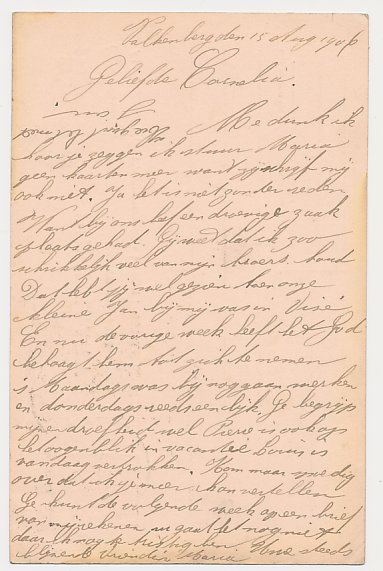 Valkenberg den 15 Aug 1906
Geliefde Cornelia.
Me dunk ik
hoor je zeggen ik stuur Maria
geen kaarten meer want zij schrijf mij
ook niet. Ja het is niet zonder reden
Want bij ons heef een droevige zaak
plaats gehad. Gij weet dat ik zoo
schrikkelijk veel van mijn broers houd
Dat heb gij wel gezien toen onze
kleine Jan bij mij was in Visé
En nu de vorige week heeft het God
behaagt hem tot zich te nemen
's Maandags was hij nog gaan werken
en donderdags reeds een lijk. Ge begrijp
mijn droefheid wel Pierre is ook op
het oogenblik in vacantie Louis is
vandaag vertrokken. Kom maar spoedig
over dat ik je meer kan vertellen
Ge kunt de volgende week op een brief
van mij rekenen nu gaat het nog niet
daar ik nog te treurig ben. Uwe steeds
liefhebbende vriendin Maria